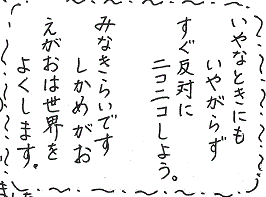 いやなときにも
いやがらず
すぐ反対に
ニコニコしよう。
みなきらいです
しかめがお
えがおは世界を
よくします。